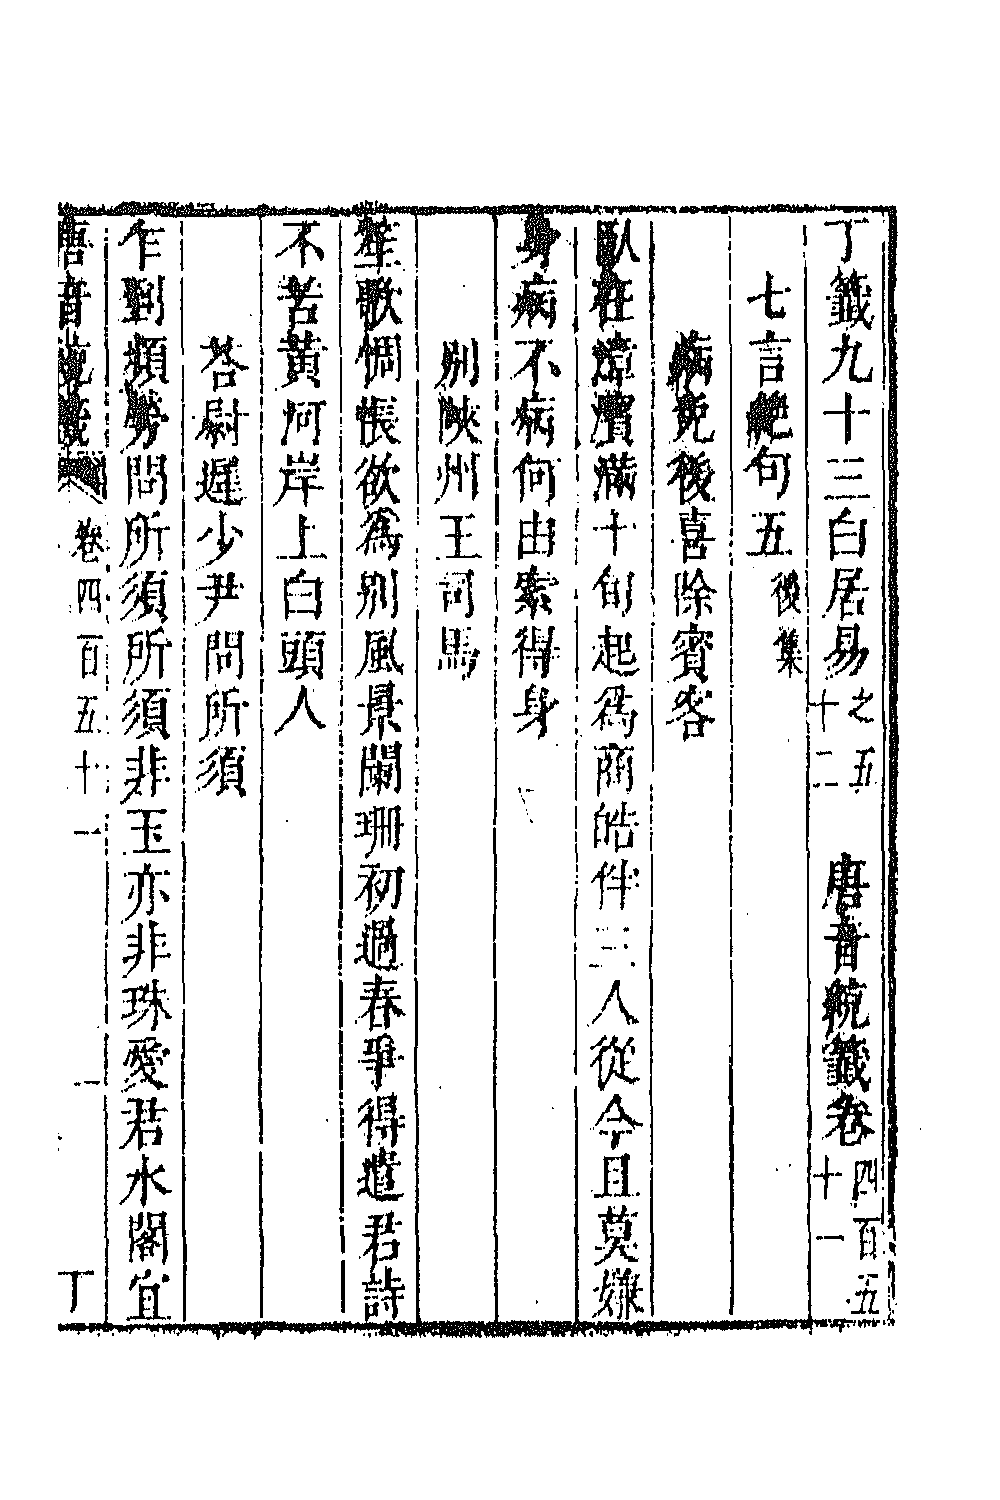 丁籤九十三白居易之五十二　唐音統籤卷四百五十一
七言絶句五後集
病免後喜除賓客
臥在漳濱滿十旬起爲商皓伴三人從今且莫嫌
身病不病何由索得身
別陜州王司馬
笙歌惆悵欲爲別風景闌珊初過春爭得遣君詩
不苦黃河岸上白頭人
荅尉遲少尹問所須
乍到頻勞問所須所須非玉亦非珠愛君水閣宜
唐音統籤 卷四百五十一　一　丁